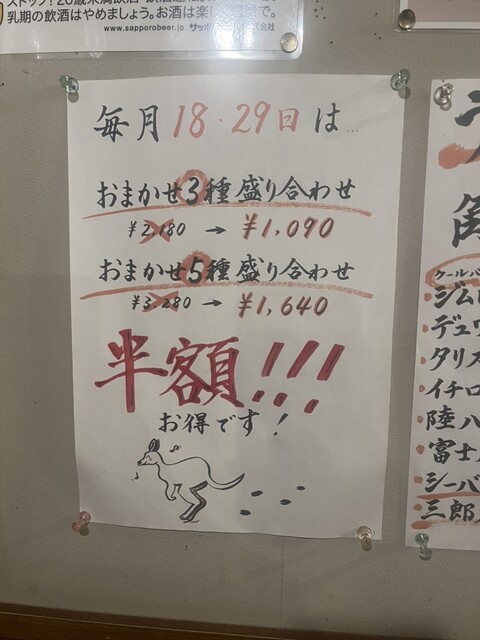 ストップ!20歳未満飲酒・飲酒運転
乳期の飲酒はやめましょう。お酒は楽しく
で。
www.sapporobeer.jp サッポ
会社
毎月18・29日は…
おまかせ3種盛り合わせ
¥2,180 → ¥1,090
おまかせ5種盛り合わせ
¥3,280 → ¥1,640
半額!!!
お得です!
角
クールバ
ジム
デュワ
タリス
イチロ
陸八
富士
シーバ
三郎